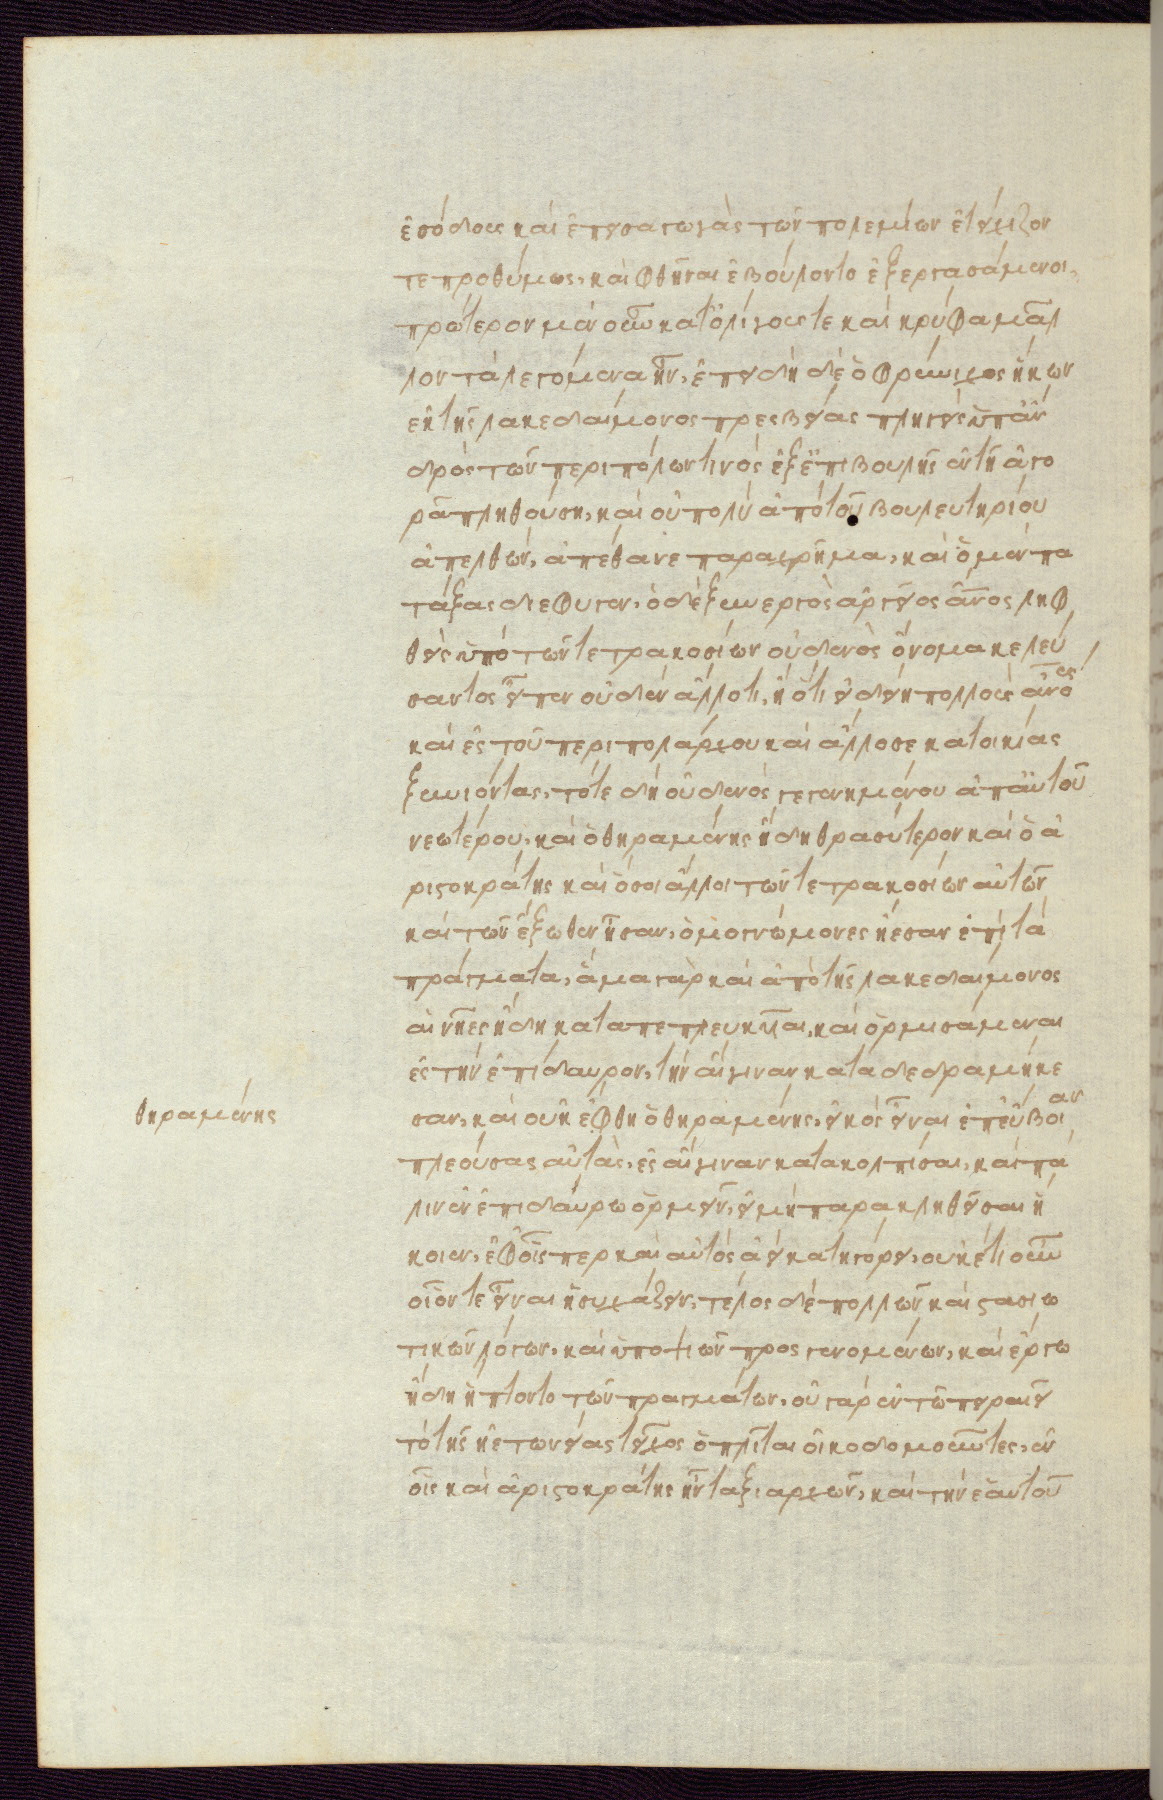 ἐσόδους καὶ ἐπεσαγωγὰς τῶν πολεμίων ἐτείχιζον
τε προθύμως, καὶ φθῆναι ἐβούλοντο ἐξεργασάμενοι.
πρότερον μὲν οὖν κατ' ὀλίγους τε καὶ κρύφα μᾶλ
λον τὰ λεγόμενα ἦν, ἐπειδὴ δὲ ὁ φρύνιχος ἥκων
ἐκ τῆς λακεδαίμονος πρεσβείας πληγεὶς ὑπ' ἀν
δρὸς τῶν περιπόλων τινὸς ἐξ ἐπιβουλῆς ἐν τῇ ἀγο
ρᾷ πληθούσῃ, καὶ οὐ πολὺ ἀπὸ τοῦ βουλευτηρίου
ἀπελθὼν, ἀπέθανε παραχρῆμα, καὶ ὁ μὲν πα
τάξας διέφυγεν, ὁ δὲ ξυνεργὸς ἀργεῖος ἄνος ληφ
θεὶς ὑπὸ τῶν τετρακοσίων οὐδενὸς ὄνομα κελεύ
σαντος εἶπεν οὐδὲν ἄλλο τι, ἢ ὅτι εἰδείη πολλοὺς ἀνους
καὶ ἐς τοῦ περιπολάρχου καὶ ἄλλοσε κατ' οἰκίας
ξυνιόντας, τότε δὴ οὐδενὸς γεγενημένου ἀπ' αὐτοῦ
νεωτέρου, καὶ ὁ θηραμένης ἤδη θρασύτερον καὶ ὁ ἀ
ριστοκράτης καὶ ὅσοι ἄλλοι τῶν τετρακοσίων αὐτῶν
καὶ τῶν ἔξωθεν ἦσαν, ὁμογνώμονες ᾔεσαν ἐπὶ τὰ
πράγματα, ἅμα γὰρ καὶ ἀπὸ τῆς λακεδαίμονος
αἱ νῆες ἤδη καταπεπλευκυῖαι, καὶ ὁρμισάμεναι
ἐς τὴν ἐπίδαυρον, τὴν αἴγιναν καταδεδραμήκε
σαν, καὶ οὐκ ἔφθη ὁ θηραμένης, εἰκὸς εἶναι ἐπ' εὔβοιαν
πλεούσας αὐτὰς, ἐς αἴγιναν κατακολπίσαι, καὶ πά
λιν ἐν ἐπιδαύρω ὁρμεῖν, εἰ μὴ παρακληθεῖσαι ἥ
κοιεν, ἐφ' οἷσπερ καὶ αὐτὸς ἀεὶ κατηγόρει, οὐκέτι οὖν
οἷόν τε εἶναι ἡσυχάζειν, τέλος δὲ πολλῶν καὶ στασιω
τικῶν λόγων, καὶ ὑποψιῶν προσγενομένων, καὶ ἔργω
ἤδη ἥπτοντο τῶν πραγμάτων, οἱ γὰρ ἐν τῶ πειραιεῖ
τὸ τῆς ἠετωνείας τεῖχος ὁπλῖται οἰκοδομοῦντες, ἐν
οἷς καὶ ἀριστοκράτης ἦν ταξιαρχῶν, καὶ τὴν ἑαυτοῦ
θηραμένης